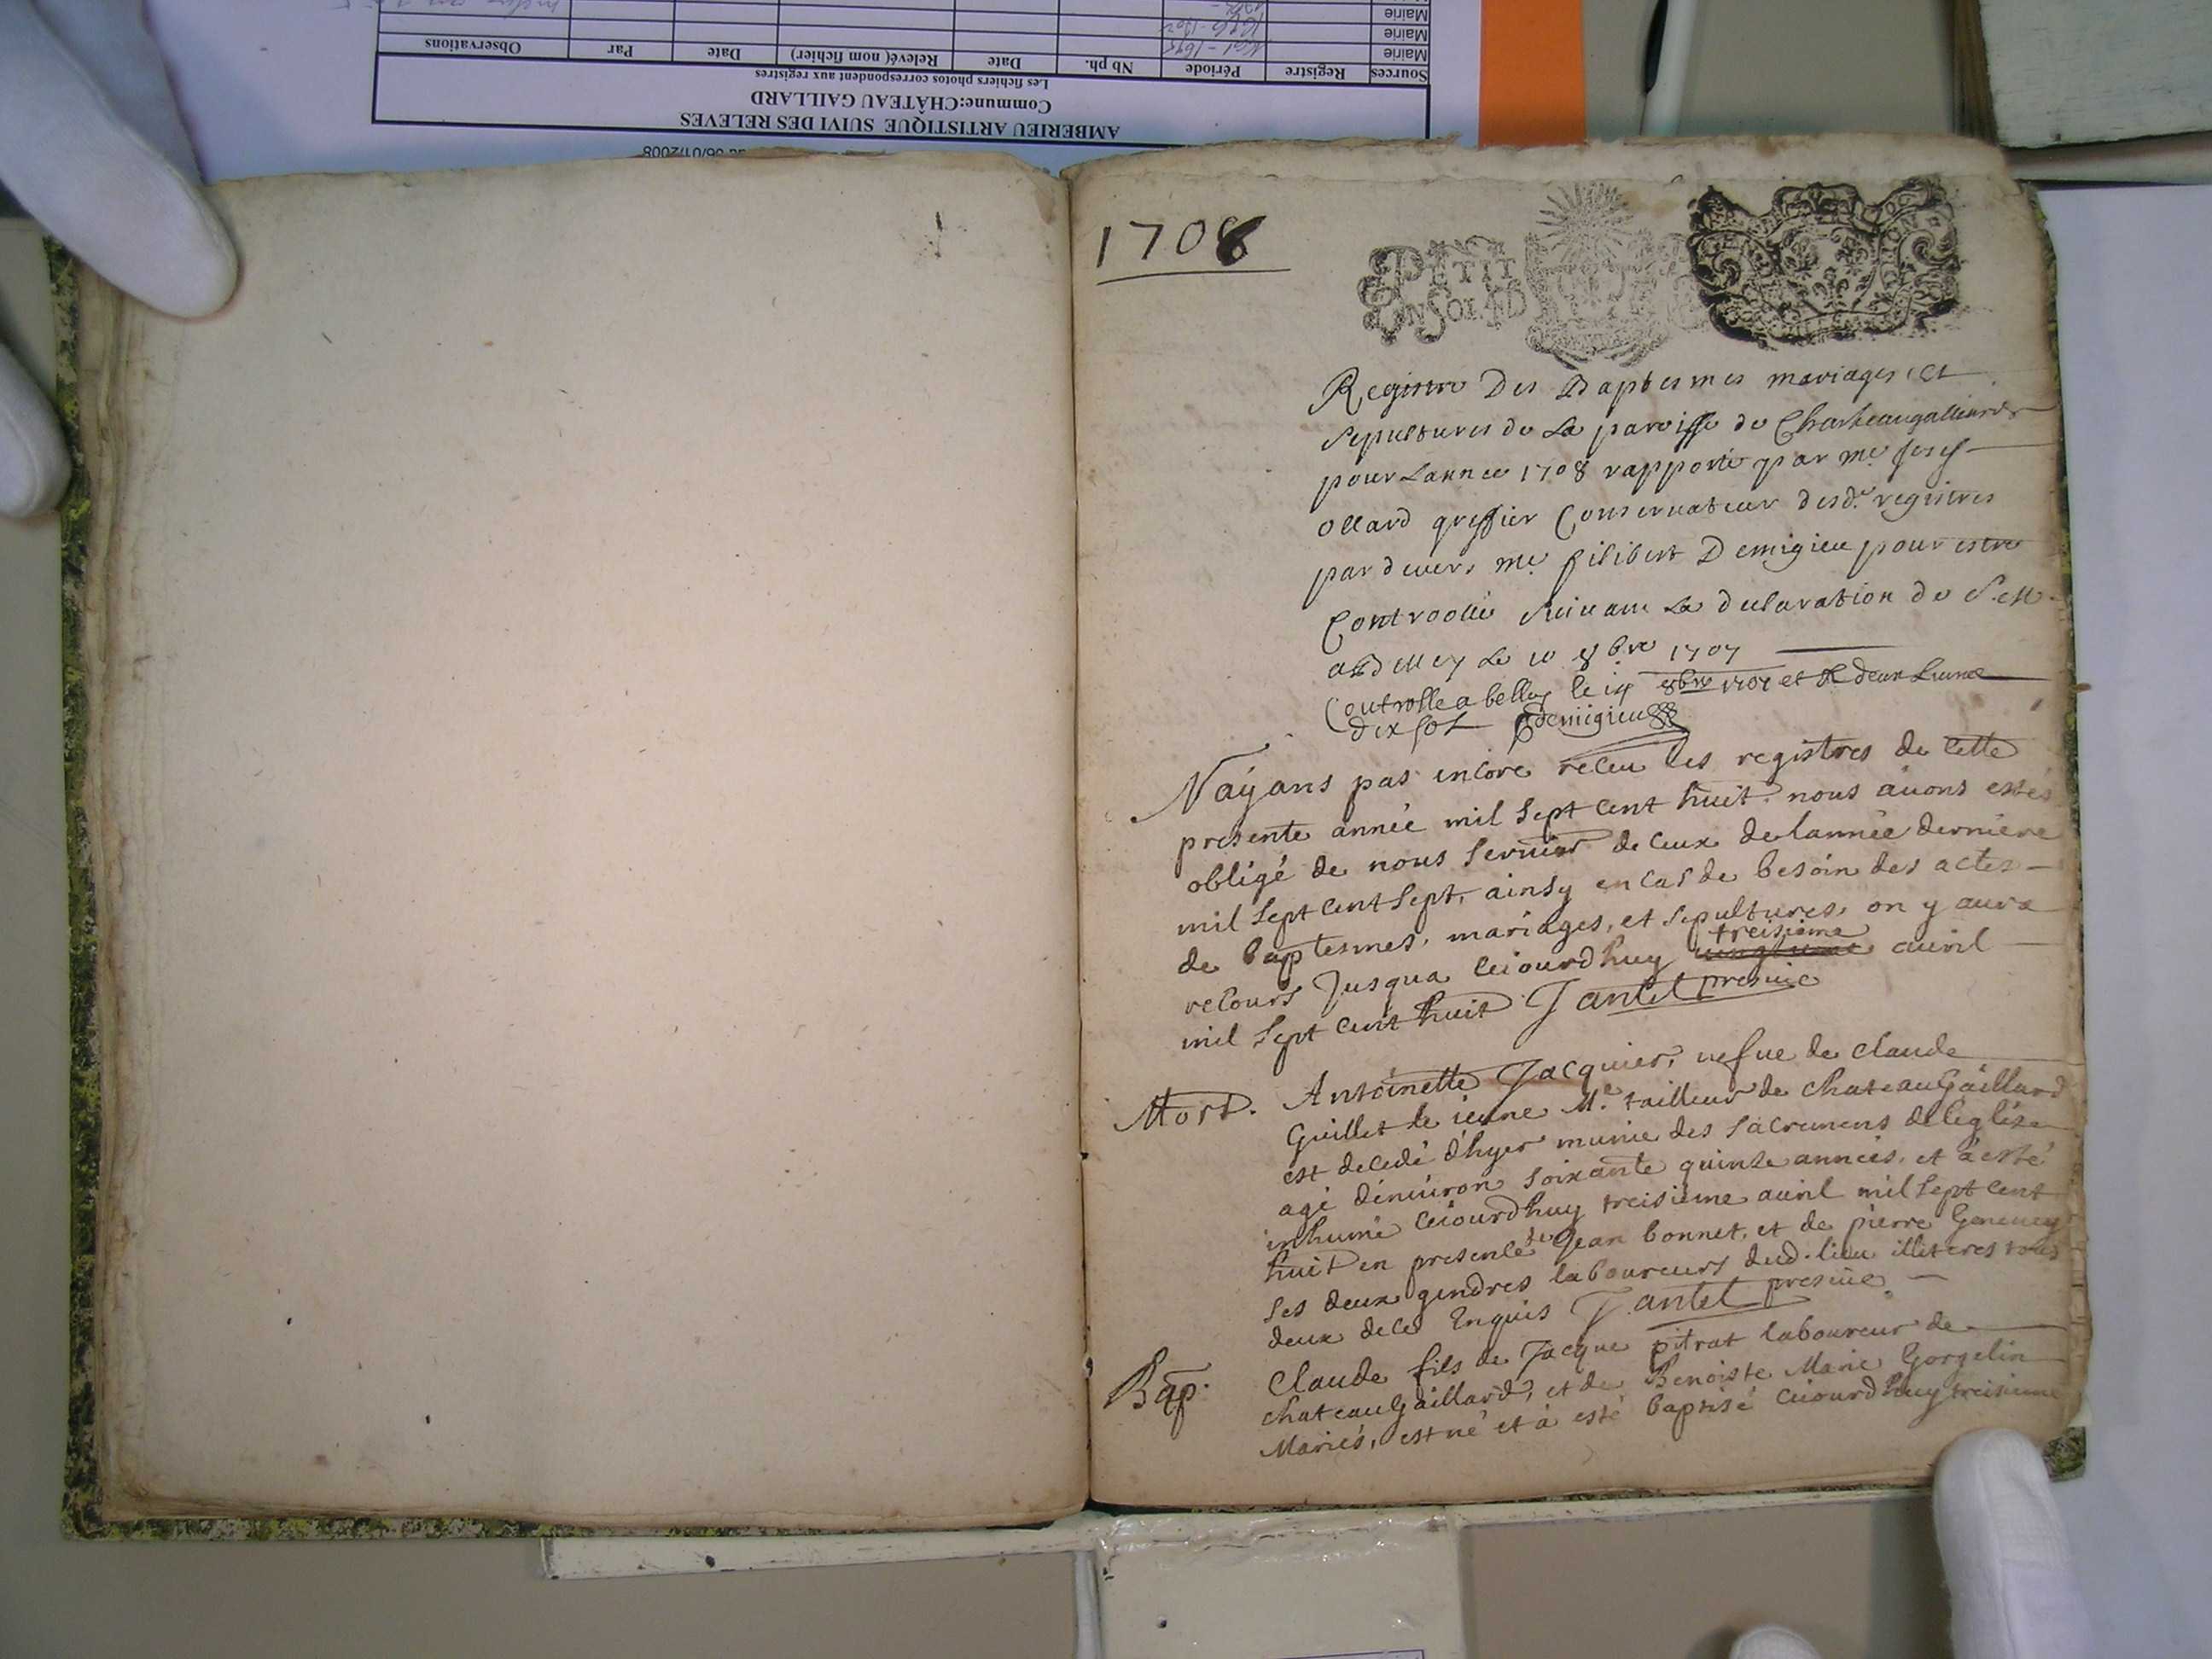 AMBERIEU ARTISTIQUE SUIVI DES RELEVES
Commune:CHÂTEAU GAILLARD
Les fichiers photos correspondent aux registres
Sources Registre Période Nb ph. Date Relevé( nom fichier) Date Par Observations
Mairie
Mairie
Mairie
1708
PETIT
Registre Des Baptesmes mariages et
sepultures de La paroisse de Chasteaugalliard
pour Lannee 1708 rapporté par me Josef
ollard greffier Conservateur desd. registres
pardevers me filibert Demigieu pour estre
Controollé suivant La declaration de
le 10 8bre 1707
Controlle a belley le 14 8bre 1707 et deux Liures
dix sol Demigieu
N'aÿans pas encore receu les registres de cette
presente année mil sept cent huit. nous auons estés
obligé de nous seruir de ceux de lannée derniere
mil sept cent sept, ainsy en cas de besoin des actes
de baptesmes, mariages, et sepultures, on y aura
recours Jusqua ceiourdhuy treisieme auril
mil sept cent huit Jantet
Mort. Antoinette Jacquier, vefue de claude
Guillet le ieune Me tailleur de chateauGaillard
est decedé d'hyer munie des sacremens de leglise
agé d'enuiron soixante quinze années, et a esté
inhumé ceiourdhuy treisieme auril mil sept cent
huit en presence de Jean bonnet, et de pierre Geneuey
ses deux gendres laboureurs dud. lieu illiteres tous
deux de ce Enquis Jantet
Bap. Claude fils de Jacque pitrat laboureur de
chateauGaillard, et de Benoiste Marie Gorgelin
Mariés, est né et a esté baptisé ceiourdhuy treisieme